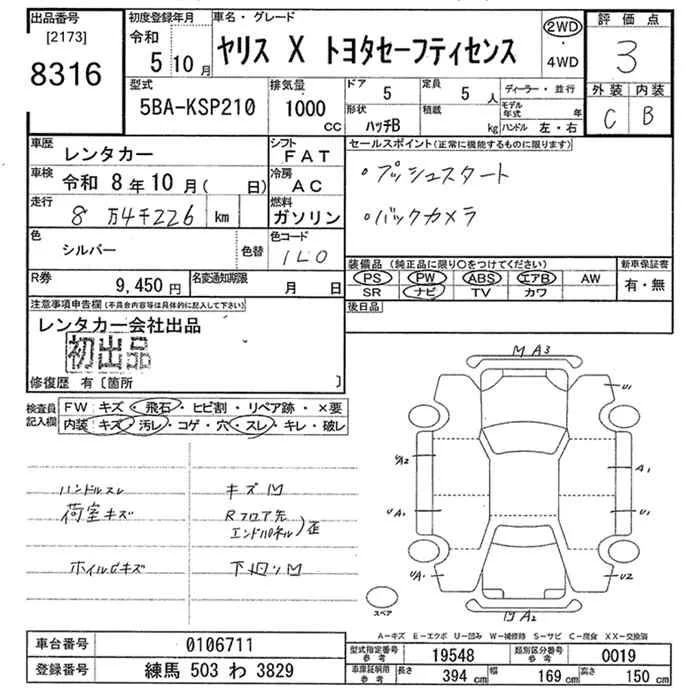 出品番号
[2173]
8316
初度登録年月
令和
5年10月
車名・グレード
ヤリス X トヨタセーフティセンス
2WD
・
4WD
評価点
3
外装 内装
C B
型式
5BA-KSP210
排気量
1000
CC
ドア
5
定員
5人
形状
ハッチB
積載
kg
ディーラー・並行
モデル年式 年
ハンドル 左・右
車歴
レンタカー
シフト
FAT
車検
令和 8年10月( 日)
冷房
AC
走行
8万4千226 km
燃料
ガソリン
色
シルバー
色替
色コード
1L0
R券
9,450円
名変通知期限
月 日
セールスポイント(正常に機能するものに限ります)
・プッシュスタート
・バックカメラ
装備品(純正品に限り〇をつけてください)
PS PW ABS エアB AW
SR ナビ TV カワ
新車保証書
有・無
後日品
注意事項申告欄(不具合内容等は具体的に記入して下さい)
レンタカー会社出品
初出品
修復歴 有〔箇所 〕
検査員記入欄
FW:キズ・飛石・ヒビ割・リペア跡・×要
内装:キズ・汚レ・コゲ・穴・スレ・キレ・破レ
ハンドルスレ
荷室キズ
キズ凹
Rフロア先
エンドパネル)歪
下廻り凹
M A3
U1
A1
U1
U2
UA1
UA1
スペア
A-キズ E-エクボ U-凹み W-補修跡 S-サビ C-腐食 XX-交換済
車台番号
0106711
登録番号
練馬 503 わ 3829
型式指定番号
参考
19548
類別区分番号
参考
0019
車庫証明用
参考
長さ
394 cm
幅
169 cm
高さ
150 cm